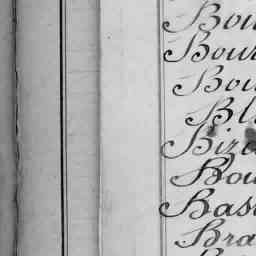 Bou
Bour
Bou
Bl
Biz
Bou
Bas
Bra